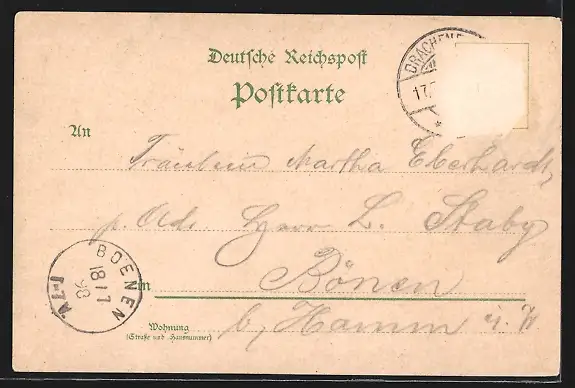 Deutsche Reichspost
Postkarte
DRACHENF
17.
An
Fräulein Martha Eberhardt,
p. Adr. Herrn L. Staby
in Bönen
b, Hamm i. W
Wohnung
(Straße und Hausnummer)
BOENEN
18 1 7
98